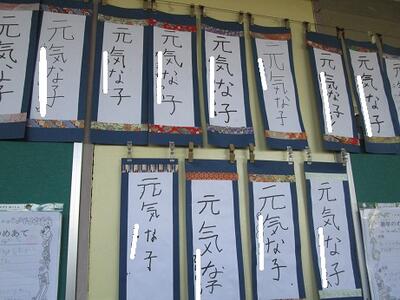 元気な子
元気な子
元気な子
元気な子
元気な子
元気な子
元気な子
元気な子
元気な子
元気な子
元気な子
元気な子
めあて